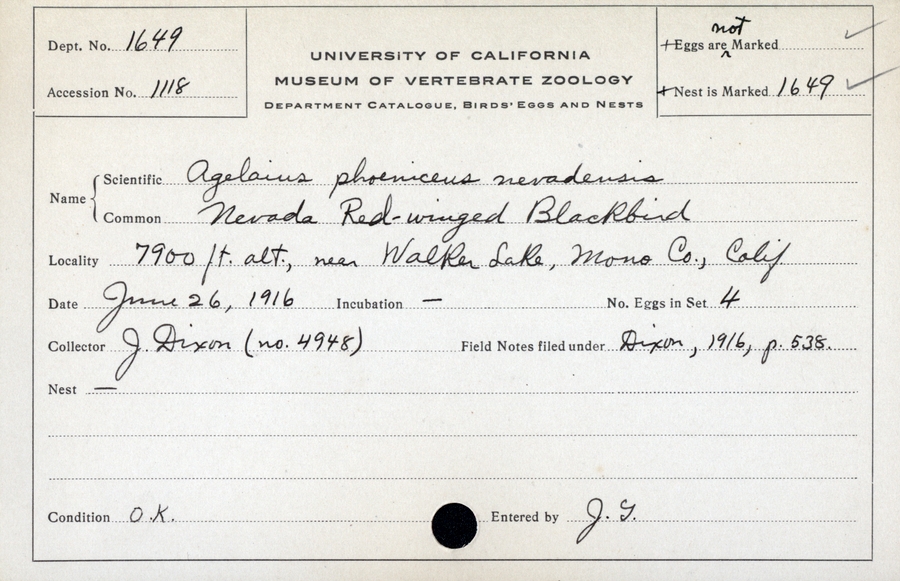 Dept. No. 1649
Accession No. 1118
UNIVERSITY OF CALIFORNIA
MUSEUM OF VERTEBRATE ZOOLOGY
DEPARTMENT CATALOGUE, BIRDS' EGGS AND NESTS
+Eggs are not Marked
+Nest is Marked 1649
Name
Scientific Agelaius phoeniceus nevadensis
Common Nevada Red-winged Blackbird
Locality 7900 ft. alt., near Walker Lake, Mono Co., Calif
Date June 26, 1916 Incubation — No. Eggs in Set 4
Collector J. Dixon (no. 4948) Field Notes filed under Dixon, 1916, p. 538.
Nest —
Condition O.K. Entered by J. G.